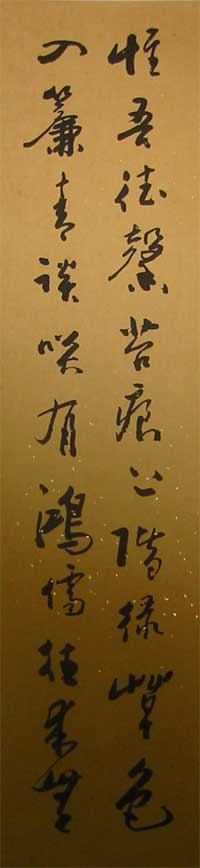 惟吾德馨苔痕上階綠草色
入簾青談咲有鴻儒往来無